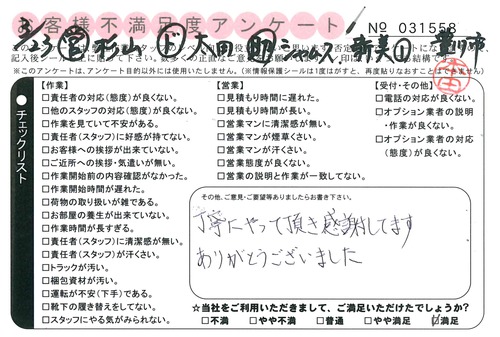 お客様不満足度アンケート
№ 031558
3/23 営 杉山 ド 太田 助 ジェームス, 新美① 豊川市
この
記入後シール
※このアンケートは、アンケート目的以外には使用いたしません。(※情報保護シールは1度がはすと、再度貼りなおすことはできません)
チェックリスト
【作業】
□責任者の対応(態度)が良くない。
□他のスタッフの対応(態度)が良くない。
□作業を見ていて不安がある。
□責任者(スタッフ)に好感が持てない。
□お客様への挨拶が出来ていない。
□ご近所への挨拶・気遣いが無い。
□作業開始前の内容確認がなかった。
□作業開始時間が遅れた。
□荷物の取り扱いが雑である。
□お部屋の養生が出来ていない。
□作業時間が長すぎる。
□責任者(スタッフ)に清潔感が無い。
□責任者(スタッフ)が汗くさい。
□トラックが汚い。
□梱包資材が汚い。
□運転が不安(下手)である。
□靴下の履き替えをしてない。
□スタッフにやる気がみられない。
【営業】
□見積もり時間に遅れた。
□見積もり時間が長い。
□営業マンに清潔感が無い。
□営業マンが煙草くさい。
□営業マンが汗くさい。
□営業態度が良くない。
□営業の説明と作業が一致してない。
【受付・その他】
□電話の対応が良くない。
□オプション業者の説明
・作業が良くない。
□オプション業者の対応
(態度)が良くない。
その他、ご意見・ご要望等ありましたらお書き下さい。
丁寧にやって頂き感謝してます
ありがとうございました
☆当社をご利用いただきまして、ご満足いただけたでしょうか?
□不満 □やや不満 □普通 □やや満足 ☑満足